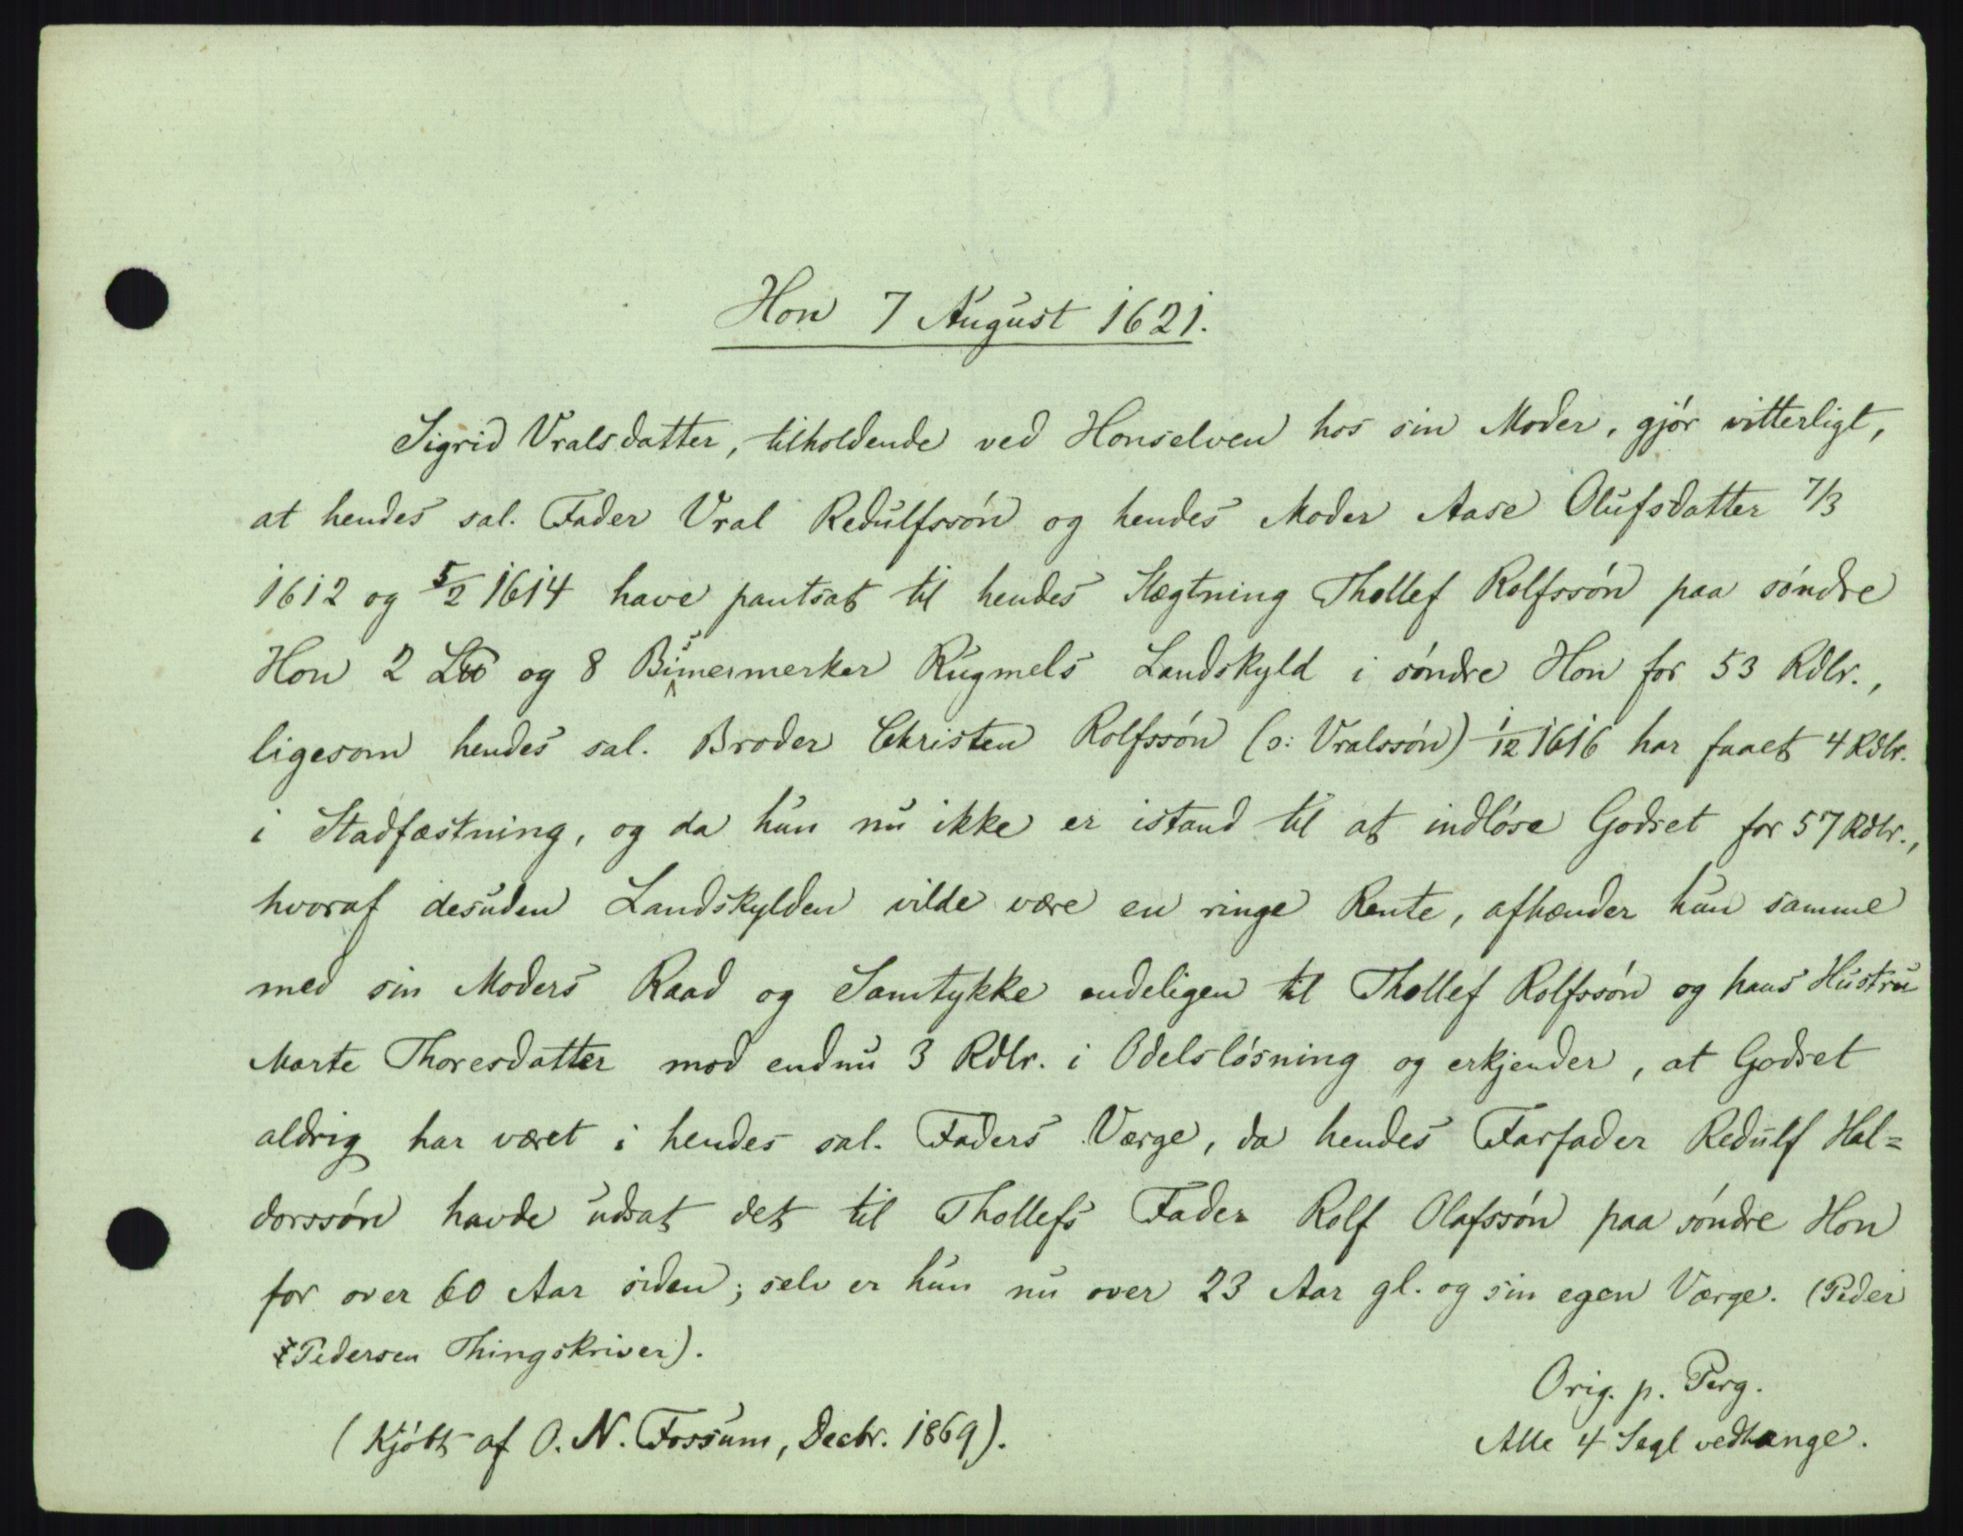 Hon 7 August 1621.
Sigrid Vralsdatter, tilholdende ved Honselven hos sin Moder, gjør vitterligt,
at hendes sal. Fader Vral Redulfssøn og hendes Moder Aase Olufsdatter 7/3
1612 og 5/2 1614 have pantsat til hendes Slægtning Thollef Rolfssøn paa søndre
Hon 2 og 8 Bismermerker Rugmels Landskyld i søndre Hon for 53 Rdlr.,
ligesom hendes sal. Broder Christen Rolfssøn (ɔ: Vralssøn) 1/12 1616 har faaet 4 Rdlr.
i Stadfæstning, og da hun nu ikke er istand til at indløse Godset for 57 Rdlr.,
hvoraf desuden Landskylden vilde være en ringe Rente, afhænder hun samme
med sin Moders Raad og Samtykke endeligen til Thollef Rolfssøn og hans Hustru
Marte Thoresdatter mod endnu 3 Rdlr. i Odelsløsning og erkjender, at Godset
aldrig har været i hendes sal. Faders Værge, da hendes Farfader Redulf Hal=
dorssøn havde udsat det til Thollefs Fader Rolf Olafssøn paa søndre Hon
for over 60 Aar siden; selv er hun nu over 23 Aar gl. og sin egen Værge. (Peder
Pedersen Thingskriver).
Orig. p. Perg.
(Kjøbt af O. N. Fossum, Decbr. 1869).
Alle 4 Segl vedhænge.